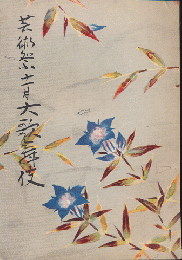 芸術祭十月大歌舞伎